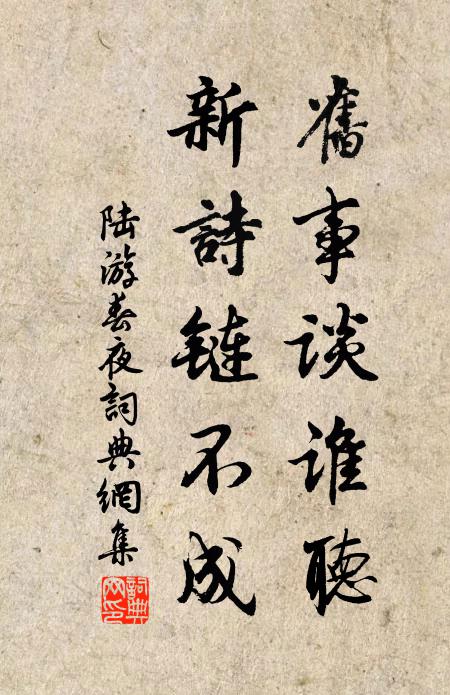 舊事談誰聽
新詩鏈不成
陸游春夜詞典網集
詞典网印